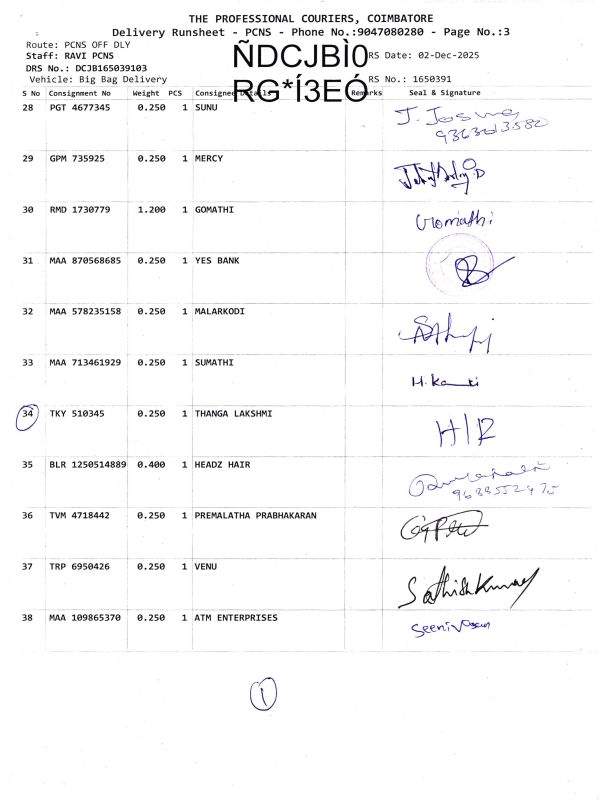 THE PROFESSIONAL COURIERS, COIMBATORE
Delivery Runsheet - PCNS - Phone No.:9047080280 - Page No.:3
Route: PCNS OFF DLY
Staff: RAVI PCNS ÑDCJBÌ0 RS Date: 02-Dec-2025
DRS No.: DCJB165039103
Vehicle: Big Bag Delivery RG*Í3EÓ RS No.: 1650391
S No Consignment No Weight PCS Consignee Details Remarks Seal & Signature
28 PGT 4677345 0.250 1 SUNU J. Josuva
9363013582
29 GPM 735925 0.250 1 MERCY
30 RMD 1730779 1.200 1 GOMATHI Gomathi
31 MAA 870568685 0.250 1 YES BANK
32 MAA 578235158 0.250 1 MALARKODI
33 MAA 713461929 0.250 1 SUMATHI H.
34 TKY 510345 0.250 1 THANGA LAKSHMI H/R
35 BLR 1250514889 0.400 1 HEADZ HAIR
9688552475
36 TVM 4718442 0.250 1 PREMALATHA PRABHAKARAN
37 TRP 6950426 0.250 1 VENU SathishKumar
38 MAA 109865370 0.250 1 ATM ENTERPRISES Seenivasan
1